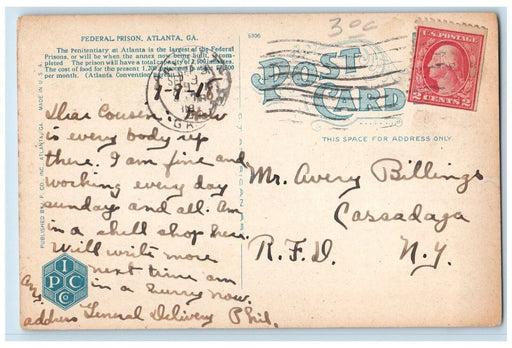 FEDERAL PRISON, ATLANTA, GA.
The Penitentiary at Atlanta is the largest of the Federal
Prisons, or will be when the annex now being built, is com-
pleted. The prison will have a total capacity of
The cost of food for the present 1,200
per month. (Atlanta Convention
5306
30¢
U.S. POSTAGE
2 CENTS 2
POST
CARD
THIS SPACE FOR ADDRESS ONLY.
MADE IN U.S.A.
PUBLISHED BY I. P. CO., INC., ATLANTA, GA.
Dear Cousen, How
is every body up
there. I am fine and
working every day
sunday and all. Am
in a shell shop here.
Will write more
next time am
in a hurry now.
Any
address General Delivery Phil.
I P C Co
Mr. Avery Billings
Cassadaga
R.F.D. N.Y.